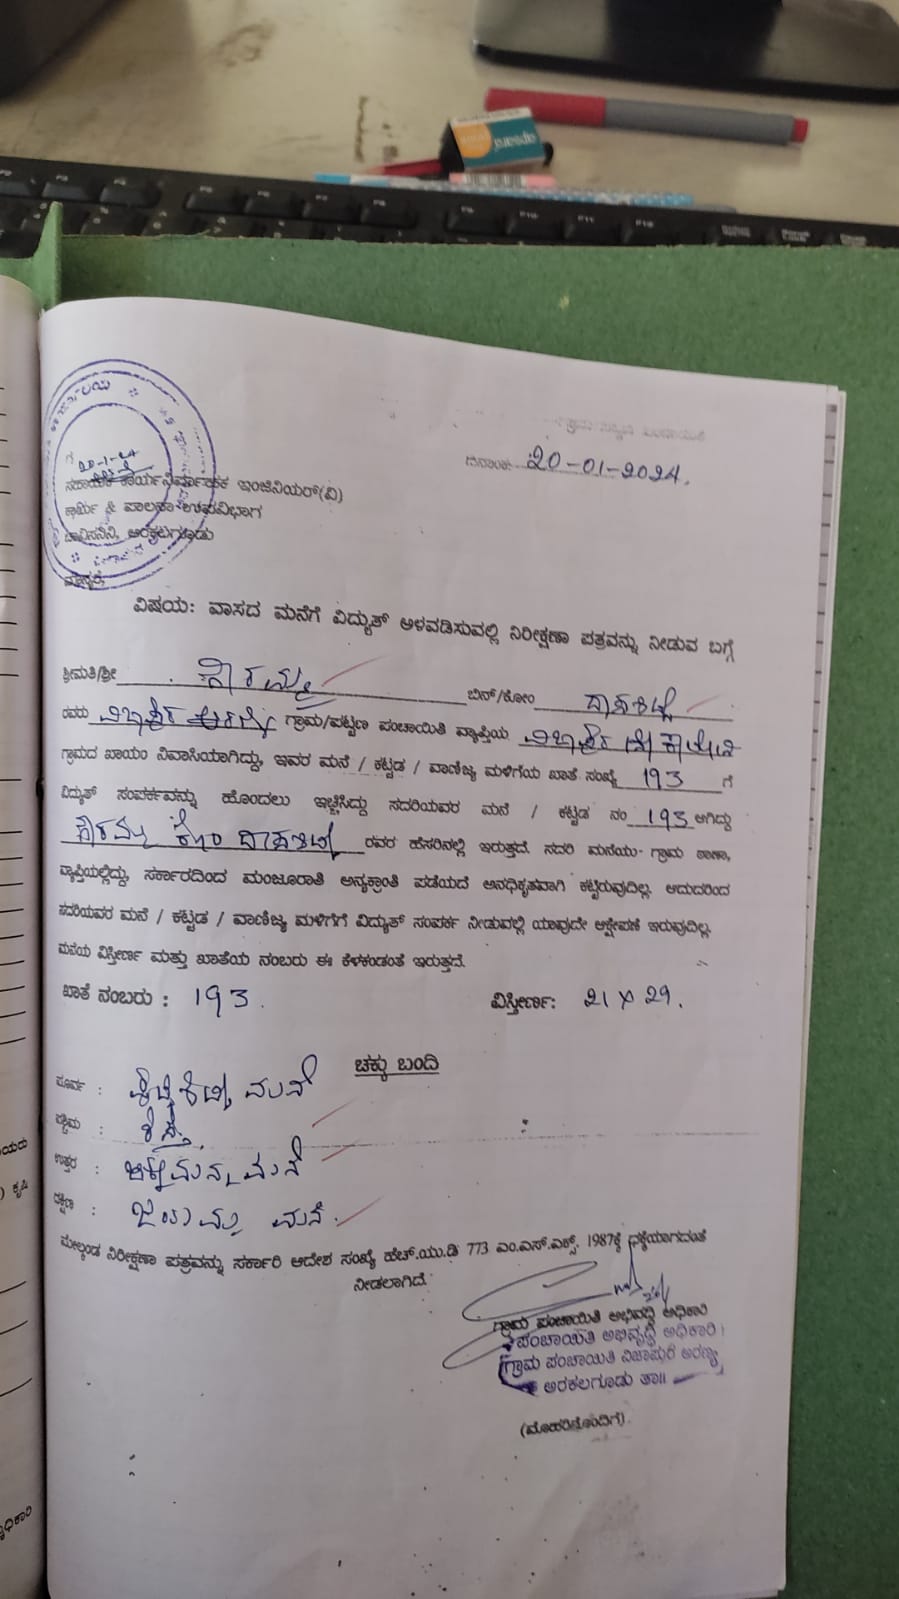 ದಿನಾಂಕ: 20-01-2024.
20-1-24
ಸಹಾಯಕ ಕಾರ್ಯನಿರ್ವಾಹಕ ಇಂಜಿನಿಯರ್(ವಿ)
ಕಾರ್ಯ & ಪಾಲನಾ ಉಪವಿಭಾಗ
ಚಾವಿಸನಿನಿ, ಅರಕಲಗೂಡು
ಮಾನ್ಯರೆ,
ವಿಷಯ: ವಾಸದ ಮನೆಗೆ ವಿದ್ಯುತ್ ಅಳವಡಿಸುವಲ್ಲಿ ನಿರೀಕ್ಷಣಾ ಪತ್ರವನ್ನು ನೀಡುವ ಬಗ್ಗೆ
ಶ್ರೀಮತಿ/ಶ್ರೀ ಬಿನ್/ಕೋಂ
ರವರು ಗ್ರಾಮ/ಪಟ್ಟಣ ಪಂಚಾಯಿತಿ ವ್ಯಾಪ್ತಿಯ
ಗ್ರಾಮದ ಖಾಯಂ ನಿವಾಸಿಯಾಗಿದ್ದು, ಇವರ ಮನೆ / ಕಟ್ಟಡ / ವಾಣಿಜ್ಯ ಮಳಿಗೆಯ ಖಾತೆ ಸಂಖ್ಯೆ 193 ಗೆ
ವಿದ್ಯುತ್ ಸಂಪರ್ಕವನ್ನು ಹೊಂದಲು ಇಚ್ಛಿಸಿದ್ದು ಸದರಿಯವರ ಮನೆ / ಕಟ್ಟಡ ನಂ 193 ಆಗಿದ್ದು
ರವರ ಹೆಸರಿನಲ್ಲಿ ಇರುತ್ತದೆ. ಸದರಿ ಮನೆಯು ಗ್ರಾಮ ಠಾಣಾ,
ವ್ಯಾಪ್ತಿಯಲ್ಲಿದ್ದು, ಸರ್ಕಾರದಿಂದ ಮಂಜೂರಾತಿ ಅನ್ಯಕ್ರಾಂತಿ ಪಡೆಯದೆ ಅನಧಿಕೃತವಾಗಿ ಕಟ್ಟಿರುವುದಿಲ್ಲ. ಆದುದರಿಂದ
ಸದರಿಯವರ ಮನೆ / ಕಟ್ಟಡ / ವಾಣಿಜ್ಯ ಮಳಿಗೆಗೆ ವಿದ್ಯುತ್ ಸಂಪರ್ಕ ನೀಡುವಲ್ಲಿ ಯಾವುದೇ ಆಕ್ಷೇಪಣೆ ಇರುವುದಿಲ್ಲ.
ಮನೆಯ ವಿಸ್ತೀರ್ಣ ಮತ್ತು ಖಾತೆಯ ನಂಬರು ಈ ಕೆಳಕಂಡಂತೆ ಇರುತ್ತದೆ.
ಖಾತೆ ನಂಬರು : 193. ವಿಸ್ತೀರ್ಣ: 21 X 29.
ಚಕ್ಕು ಬಂದಿ
ಪೂರ್ವ : ಮನೆ
ಪಶ್ಚಿಮ : ರಸ್ತೆ
ಉತ್ತರ : ಮನೆ
ದಕ್ಷಿಣ : ಜಯಮ್ಮ ಮನೆ.
ಮೇಲ್ಕಂಡ ನಿರೀಕ್ಷಣಾ ಪತ್ರವನ್ನು ಸರ್ಕಾರಿ ಆದೇಶ ಸಂಖ್ಯೆ ಹೆಚ್.ಯು.ಡಿ 773 ಎಂ.ಎನ್.ಎಕ್ಸ್. 1987ಕ್ಕೆ ಧಕ್ಕೆಯಾಗದಂತೆ
ನೀಡಲಾಗಿದೆ.
ಗ್ರಾಮ ಪಂಚಾಯಿತಿ ಅಭಿವೃದ್ಧಿ ಅಧಿಕಾರಿ
ಪಂಚಾಯಿತಿ ಅಭಿವೃದ್ಧಿ ಅಧಿಕಾರಿ
ಗ್ರಾಮ ಪಂಚಾಯಿತಿ ವಿಜಾಪುರ ಅರಣ್ಯ
ಅರಕಲಗೂಡು ತಾ||
(ಮೊಹರಿನೊಂದಿಗೆ)